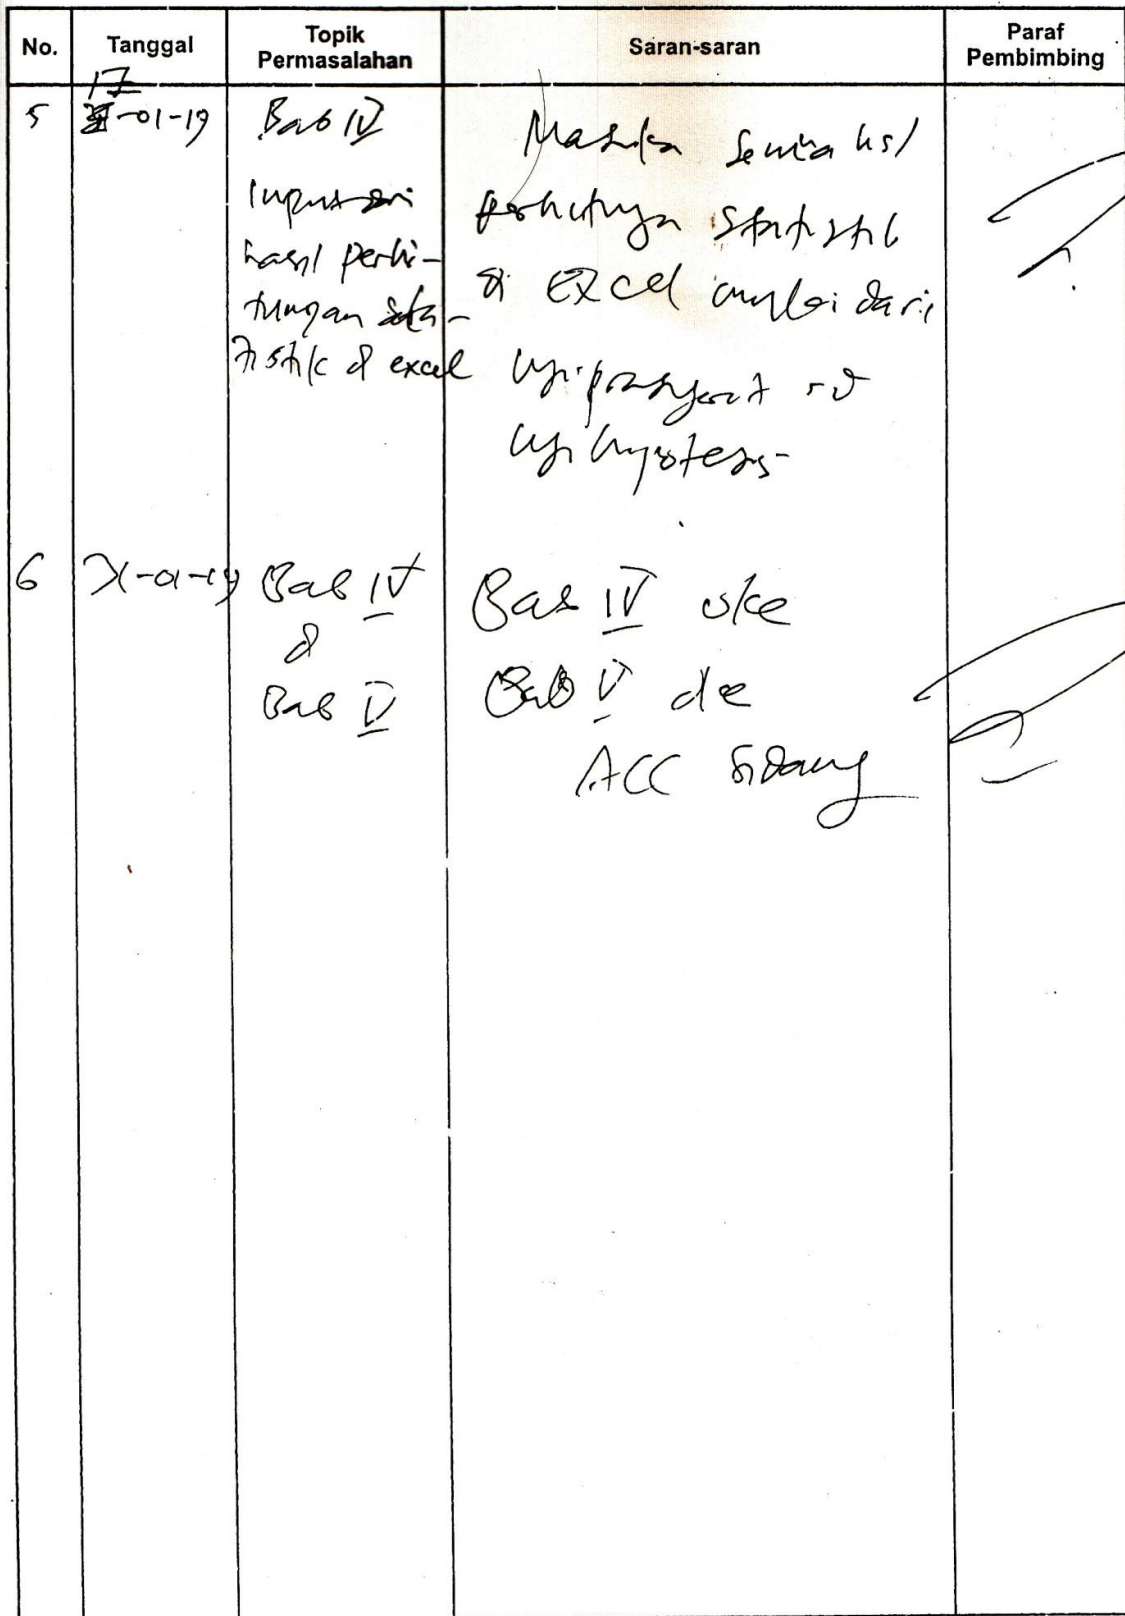 No. Tanggal Topik Permasalahan Saran-saran Paraf Pembimbing
17
5 -01-19 Bab IV
hasil perhi-
tungan sta-
tistik d excel
Masukan semua hsl
perhitungan statistik
di EXcel mulai dari
uji prasyarat sd
uji hipotesis
6 -01-19 Bab IV
&
Bab V
Bab IV oke
Bab V oke
ACC Sidang